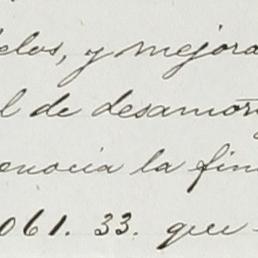 delos, y mejora
l de desamor
enocia la fin
061. 33. que